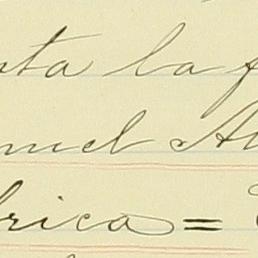 nta la f
nuel Al
brica =